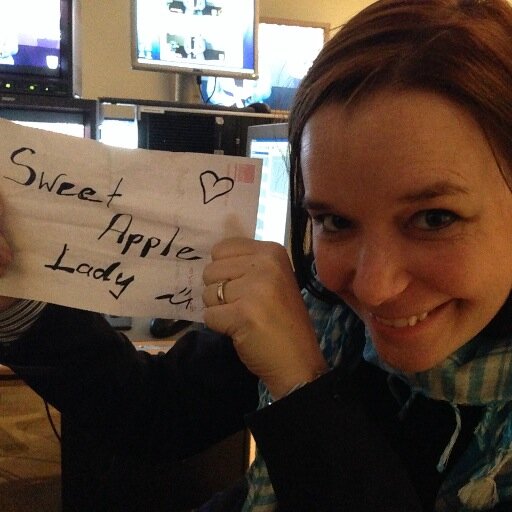 Sweet
Apple
Lady